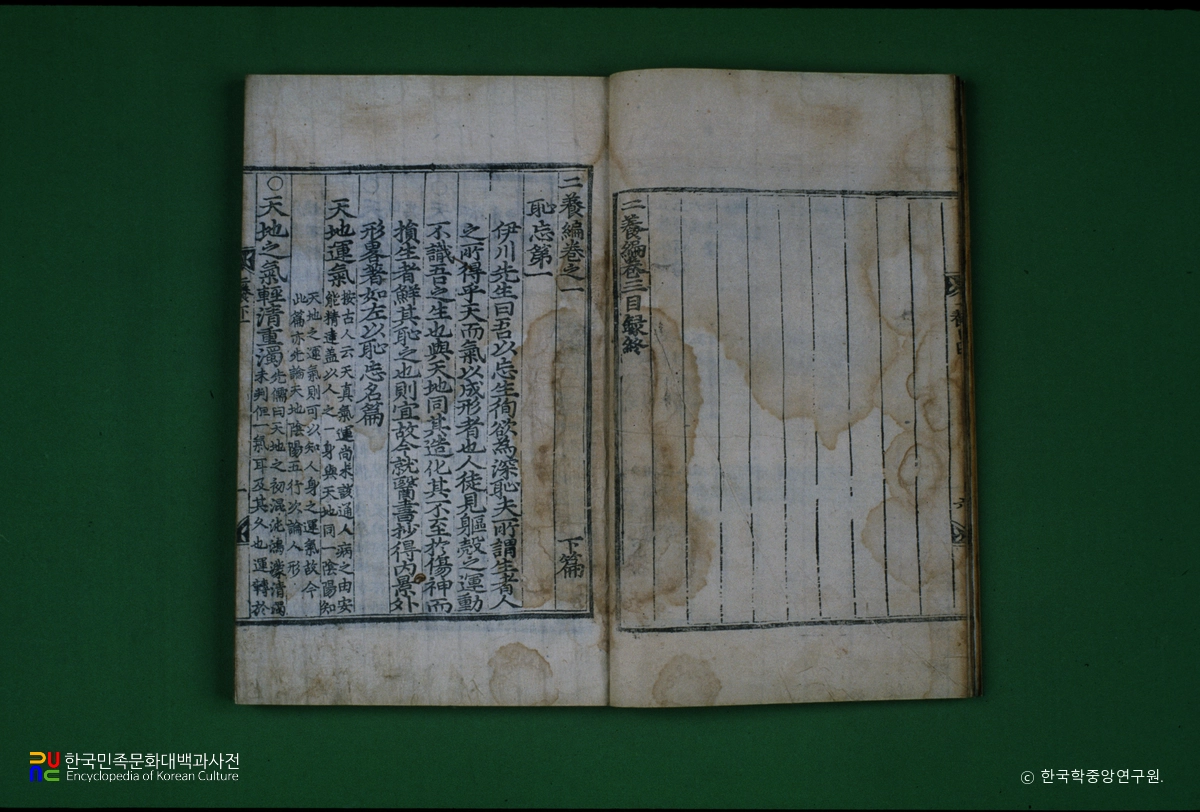 二養編卷三目録終
二養編卷之一 下篇
恥忘第一
伊川先生曰吾以忘生徇欲爲深恥夫所謂生者人
之所得乎天而氣以成形者也人徒見軀殼之運動
不識吾之生也與天地同其造化其不至於傷神而
損生者鮮其恥之也則宜故今就醫書抄得內景外
形畧著如左以恥忘名篇
天地運氣
按古人云天真氣運尚未該通人病之由安
能精達盖以人之一身與天地同一陰陽知
天地之運氣則可以知人身之運氣故今
此篇亦先論天地陰陽五行次論人形
○天地之氣輕清重濁
先儒曰天地之初混沌鴻濛清濁
未判但一氣耳及其久也運轉於
한국민족문화대백과사전
Encyclopedia of Korean Culture
ⓒ 한국학중앙연구원.